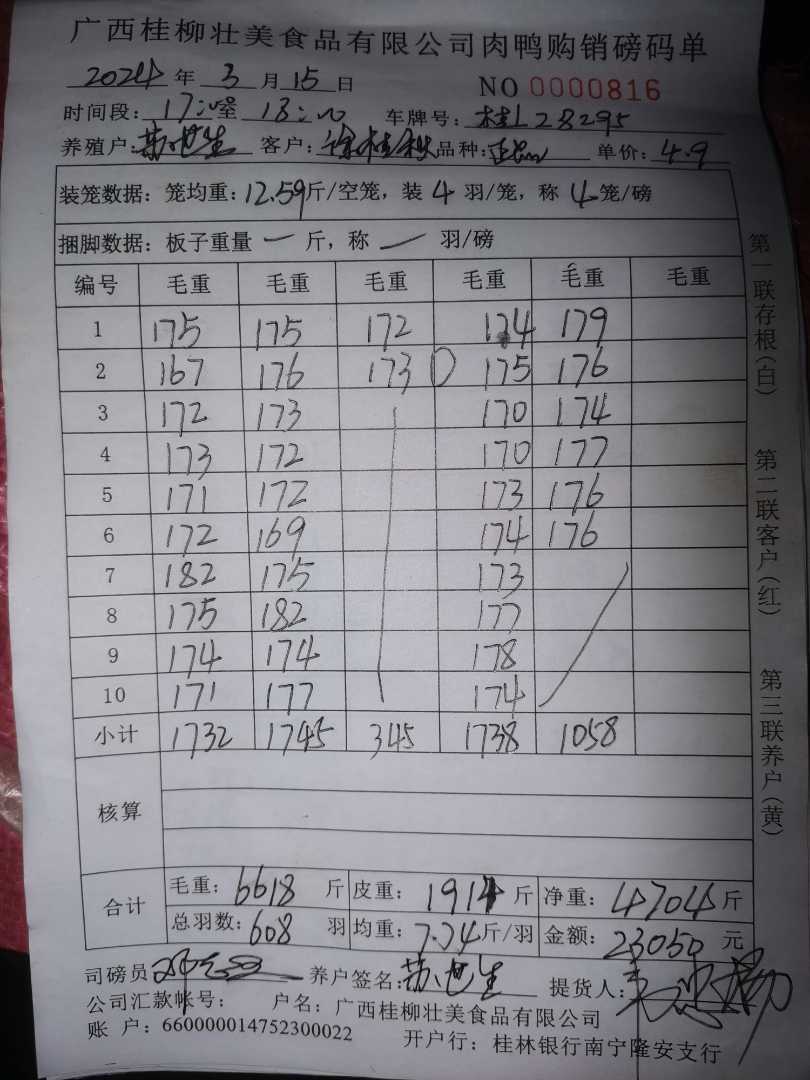 广西桂柳壮美食品有限公司肉鸭购销磅码单
2024 年 3 月 15 日 NO 0000816
时间段: 17:00 至 18:00 车牌号: 桂L28295
养殖户: 苏世生 客户: 徐桂秋 品种: 单价: 4.9
装笼数据: 笼均重: 12.59 斤/空笼, 装 4 羽/笼, 称 4 笼/磅
捆脚数据: 板子重量 一 斤, 称 一 羽/磅
编号 毛重 毛重 毛重 毛重 毛重 毛重
1 175 175 172 174 179
2 167 176 173 175 176
3 172 173 170 174
4 173 172 170 177
5 171 172 173 176
6 172 169 174 176
7 182 175 173
8 175 182 177
9 174 174 178
10 171 177 174
小计 1732 1745 345 1738 1058
核算
合计 毛重: 6618 斤 皮重: 1914 斤 净重: 4704 斤
总羽数: 608 羽 均重: 7.74 斤/羽 金额: 23050 元
司磅员 养户签名: 苏世生 提货人:
公司汇款帐号: 户名: 广西桂柳壮美食品有限公司
账 户: 660000014752300022 开户行: 桂林银行南宁隆安支行
第一联存根(白) 第二联客户(红) 第三联养户(黄)